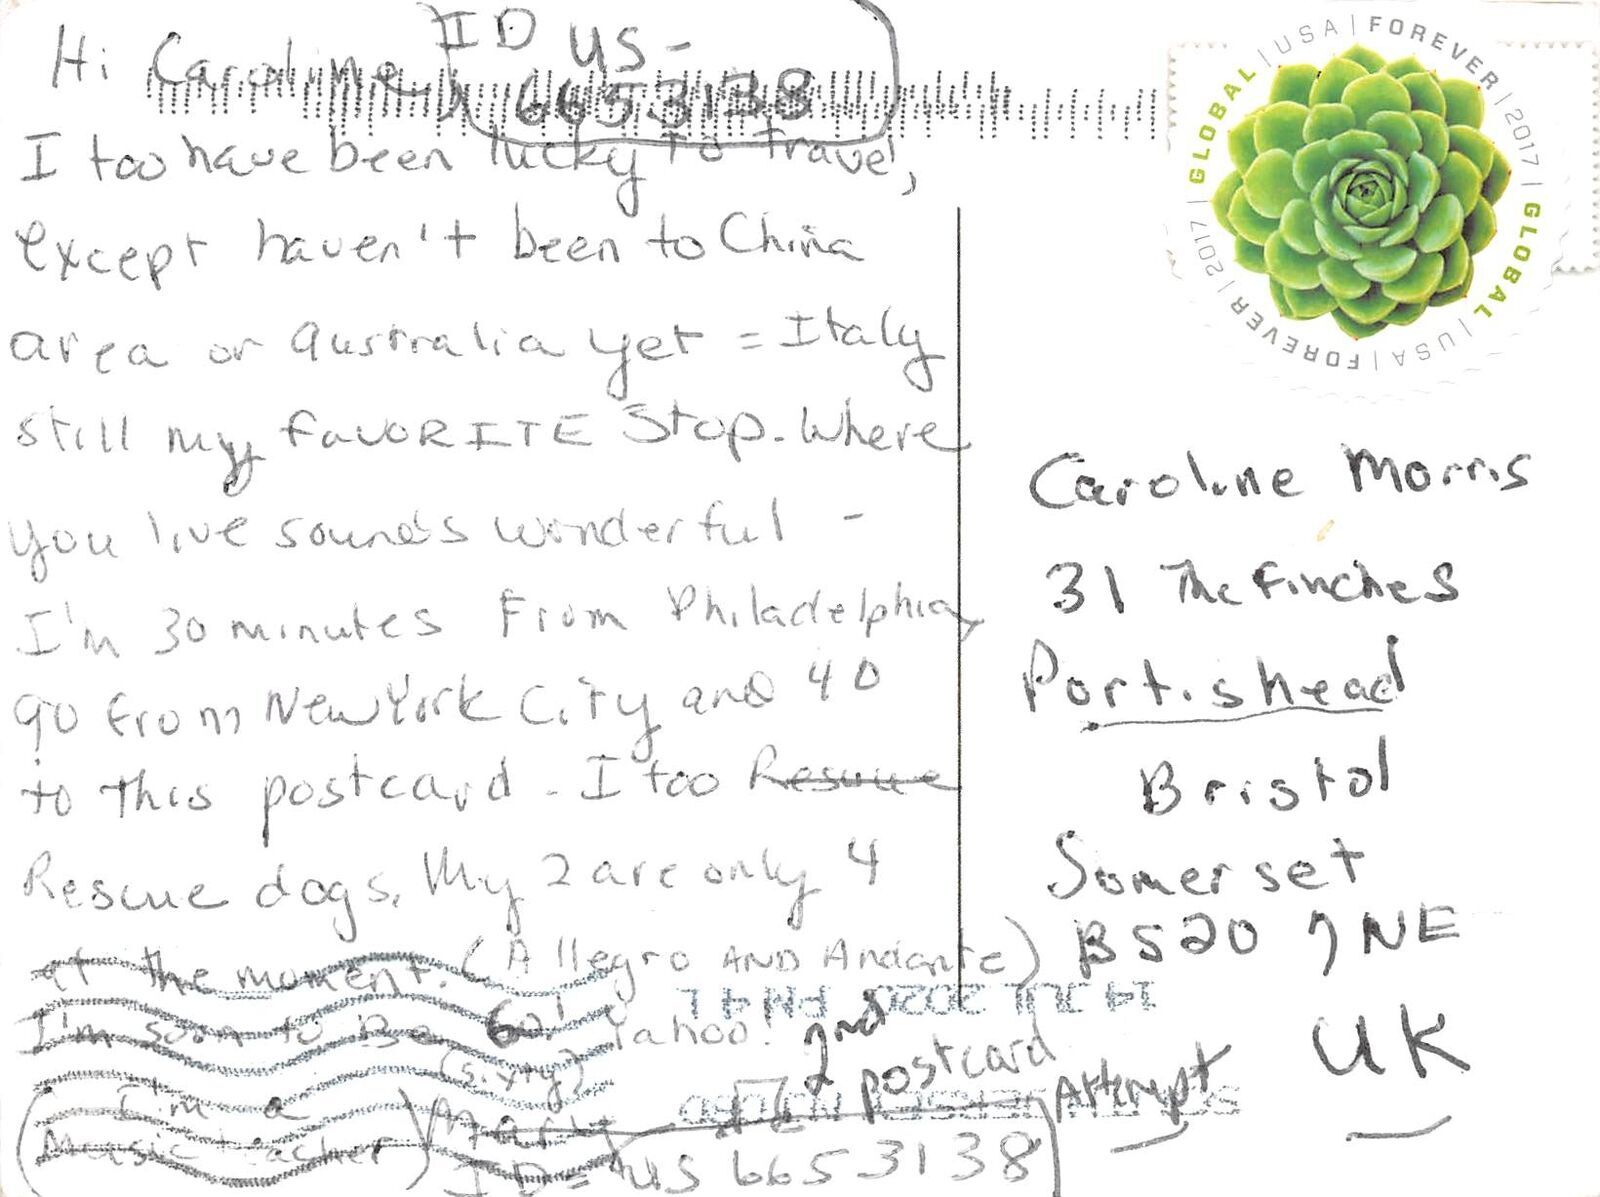 Hi Caroline,
ID US-
6653138
I too have been lucky to travel,
except haven't been to China
area or Australia yet = Italy
still my FAVORITE Stop. Where
you live sounds wonderful -
I'm 30 minutes from Philadelphia,
90 from New York City and 40
to this postcard. I too Rescue
Rescue dogs. My 2 are only 4
at the moment. (Allegro AND Andante)
I'm soon to Be 60! Yahoo!
(sixty)
(I'm a
Music teacher)
Marty
ID = US 6653138
2nd
postcard
Attempt
GLOBAL | USA | FOREVER | 2017 | GLOBAL | USA | FOREVER | 2017 |
Caroline Morris
31 The Finches
Portishead
Bristol
Somerset
BS20 7NE
UK
14 JUL 2020 PM 4 L
SOUTH JERSEY NJ 080